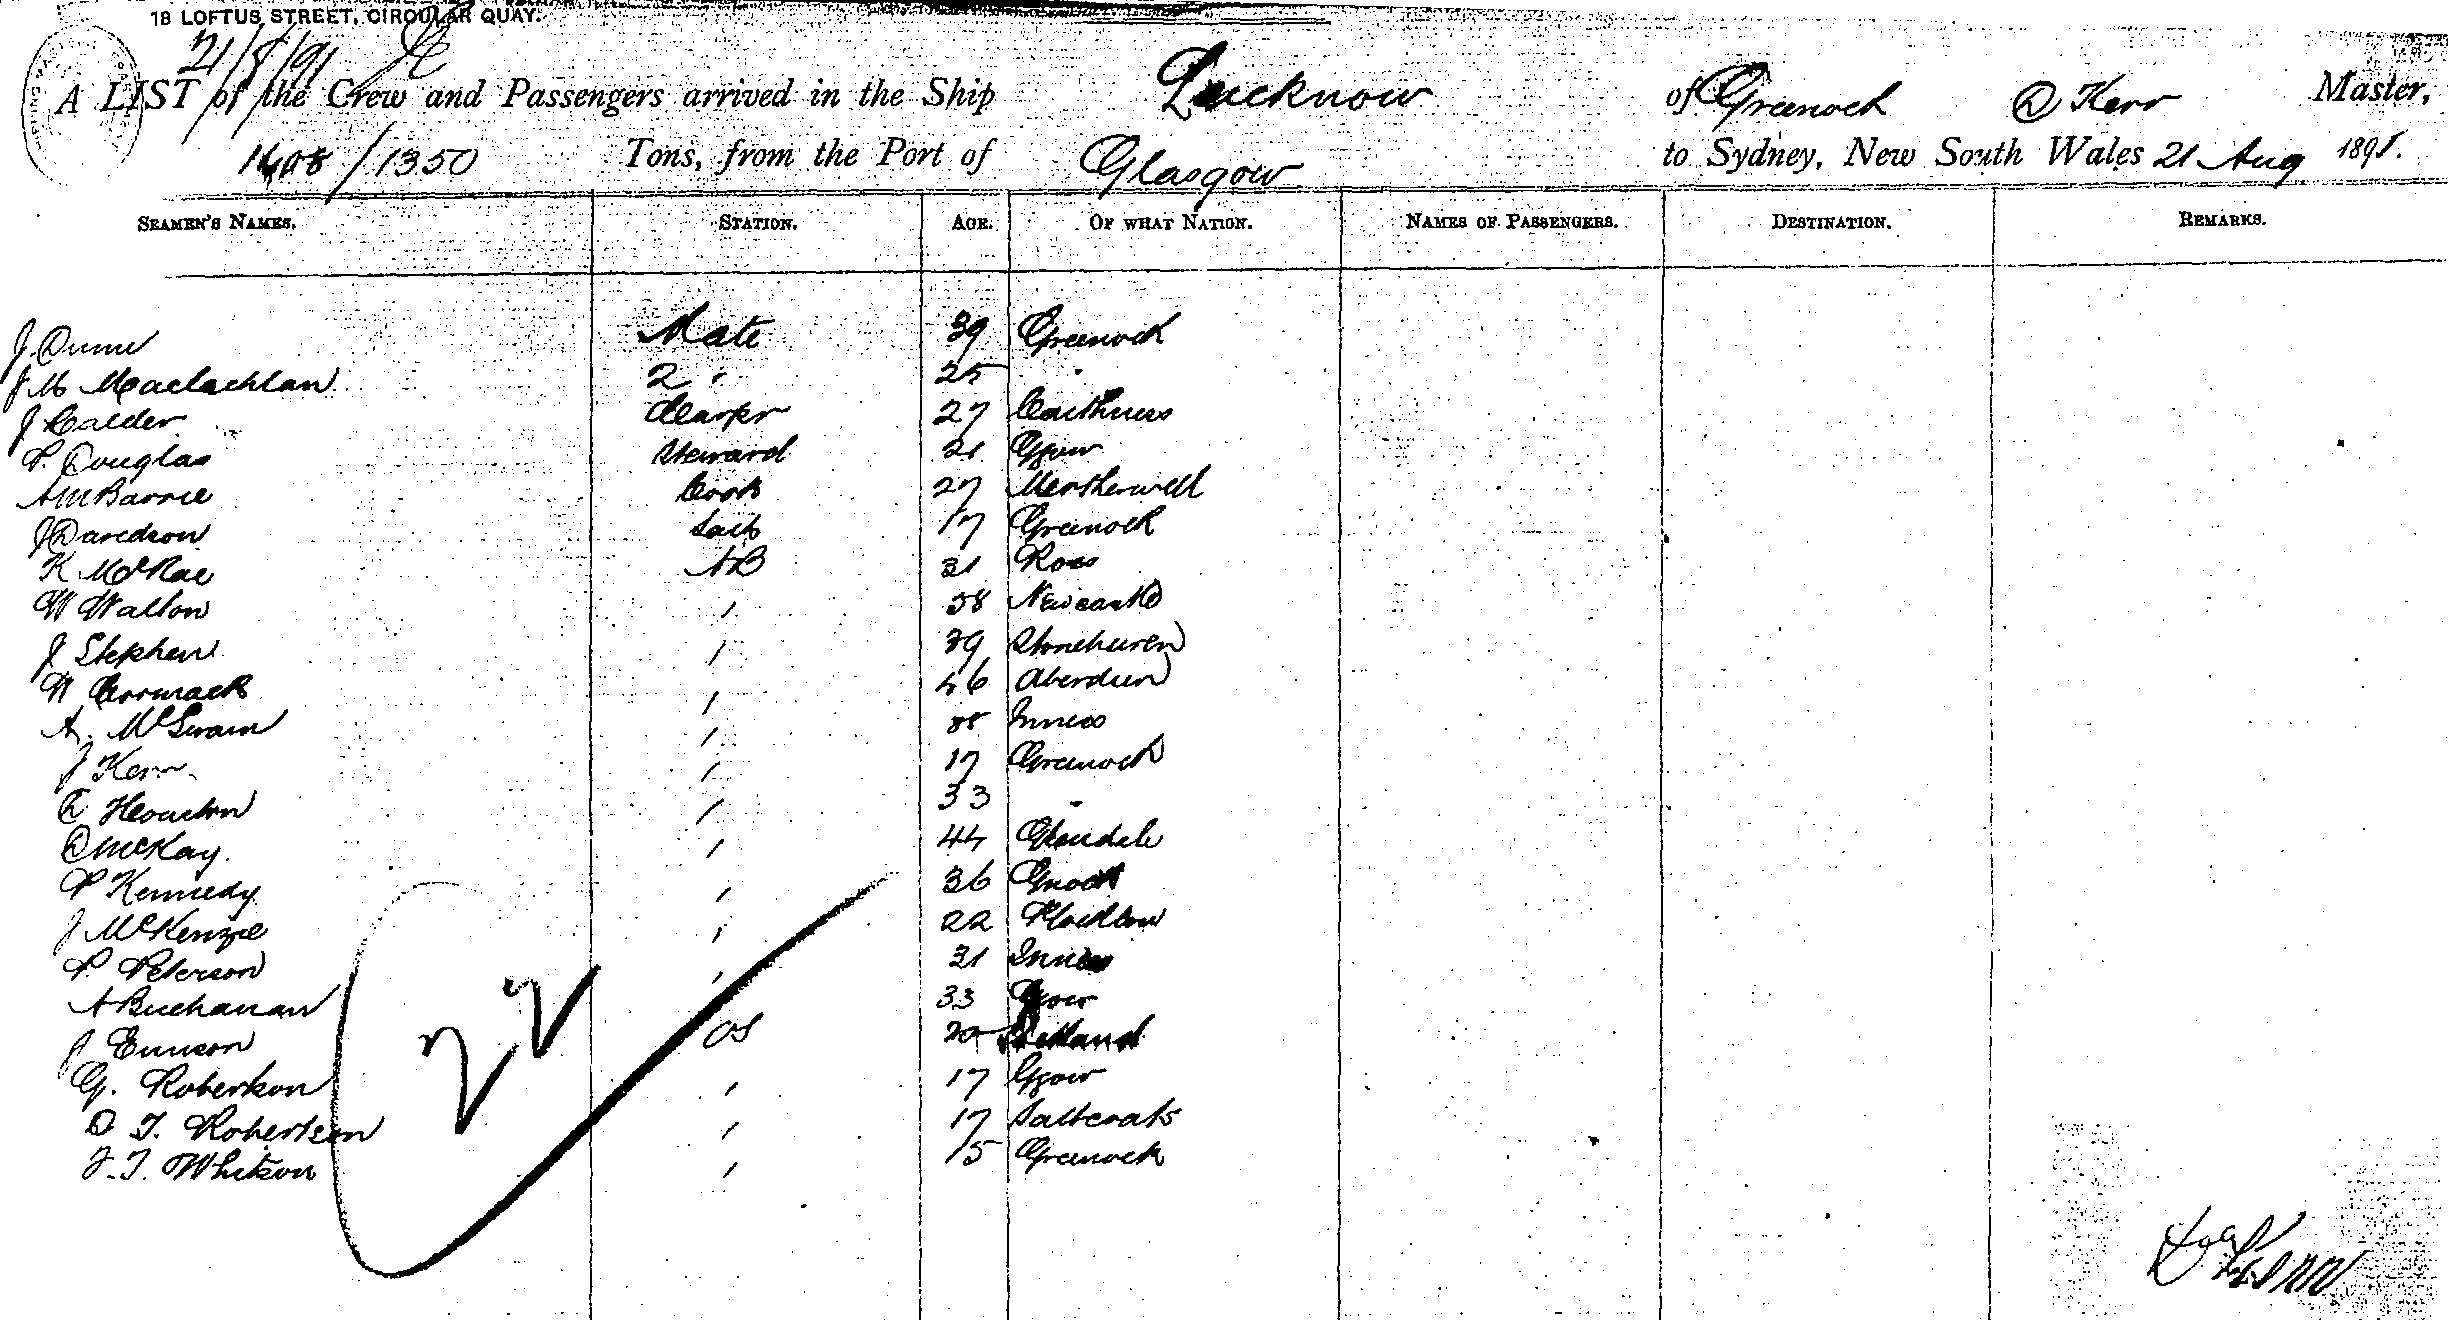 18 LOFTUS STREET, CIRCULAR QUAY.
21/8/91
A LIST of the Crew and Passengers arrived in the Ship Lucknow of Greenock D Kerr Master,
1408/1350 Tons, from the Port of Glasgow to Sydney, New South Wales 21 Aug 1891.
SEAMEN'S NAMES. STATION. AGE. OF WHAT NATION. NAMES OF PASSENGERS. DESTINATION. REMARKS.
J. Dunn Mate 39 Greenock
J M Maclachlan 2 " 25 "
J Calder Carpr 27 Caithness
P. Douglas Steward 21 Ggow
A M Barrie Cook 27 Motherwell
J Davidson 17 Greenock
K McRae AB 31 Ross
W Walton " 38 Newcastle
J Stephen " 39 Stonehaven
W Cormack " 46 Aberdeen
A. McSwain " 38 Inness
J Kerr " 17 Greenock
C Houston " 33 "
D McKay. " 44 Glendale
P Kennedy " 36 Gnock
J McKenzie " 22 Plockton
P. Peterson " 31 Inness
A Buchanan 33 Ggow
J Eunson OS 20 Shetland
G. Robertson " 17 Ggow
D T. Robertson " 17 Saltcoats
J. T. Whitson " 15 Greenock
22
D Kerr